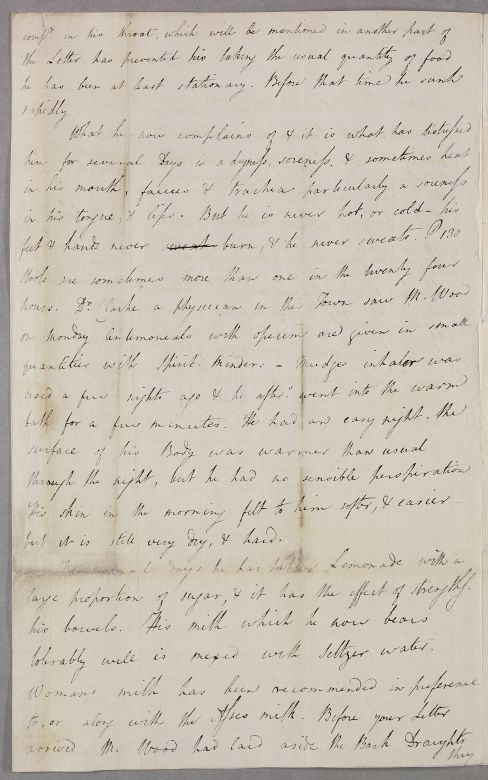 compt. in his throat, which will be mentioned in another part of
the Letter has prevented his taking the usual quantity of food
he has been at least stationary. Before that time he sunk
rapidly.
What he now complains of & it is what has distressed
him for several Days is a dryness, soreness, & sometimes heat
in his mouth, fauces & trachea particularly a soreness
in his tongue, & lips. But he is never hot, or cold – his
feet & hands never burn, & he never sweats. P 130
Stools are sometimes more than one in the twenty four
hours. Dr. Clarke a physician in this Town saw Mr. Wood
on Monday Antimonials with opium are given in small
quantities with Spirit: Minder: – Mudges inhaler was
used a few nights ago & he afterws. went into the warm
bath for a few minutes. He had an easy night. The
surface of his Body was warmer than usual
through the night, but he had no sensible perspiration
His skin in the morning felt to him softer, & easier –
but it is still very dry, & hard.
days he has taken Lemonade with a
large proportion of sugar, & it has the effect of
his bowels. His milk which he now bears
tolerably well is mixed with Seltzer water.
Womans milk has been recommended in preference
to, or along with the Asses milk. Before your Letter
arrived Mr. Wood had laid aside the Bark Draughts
they